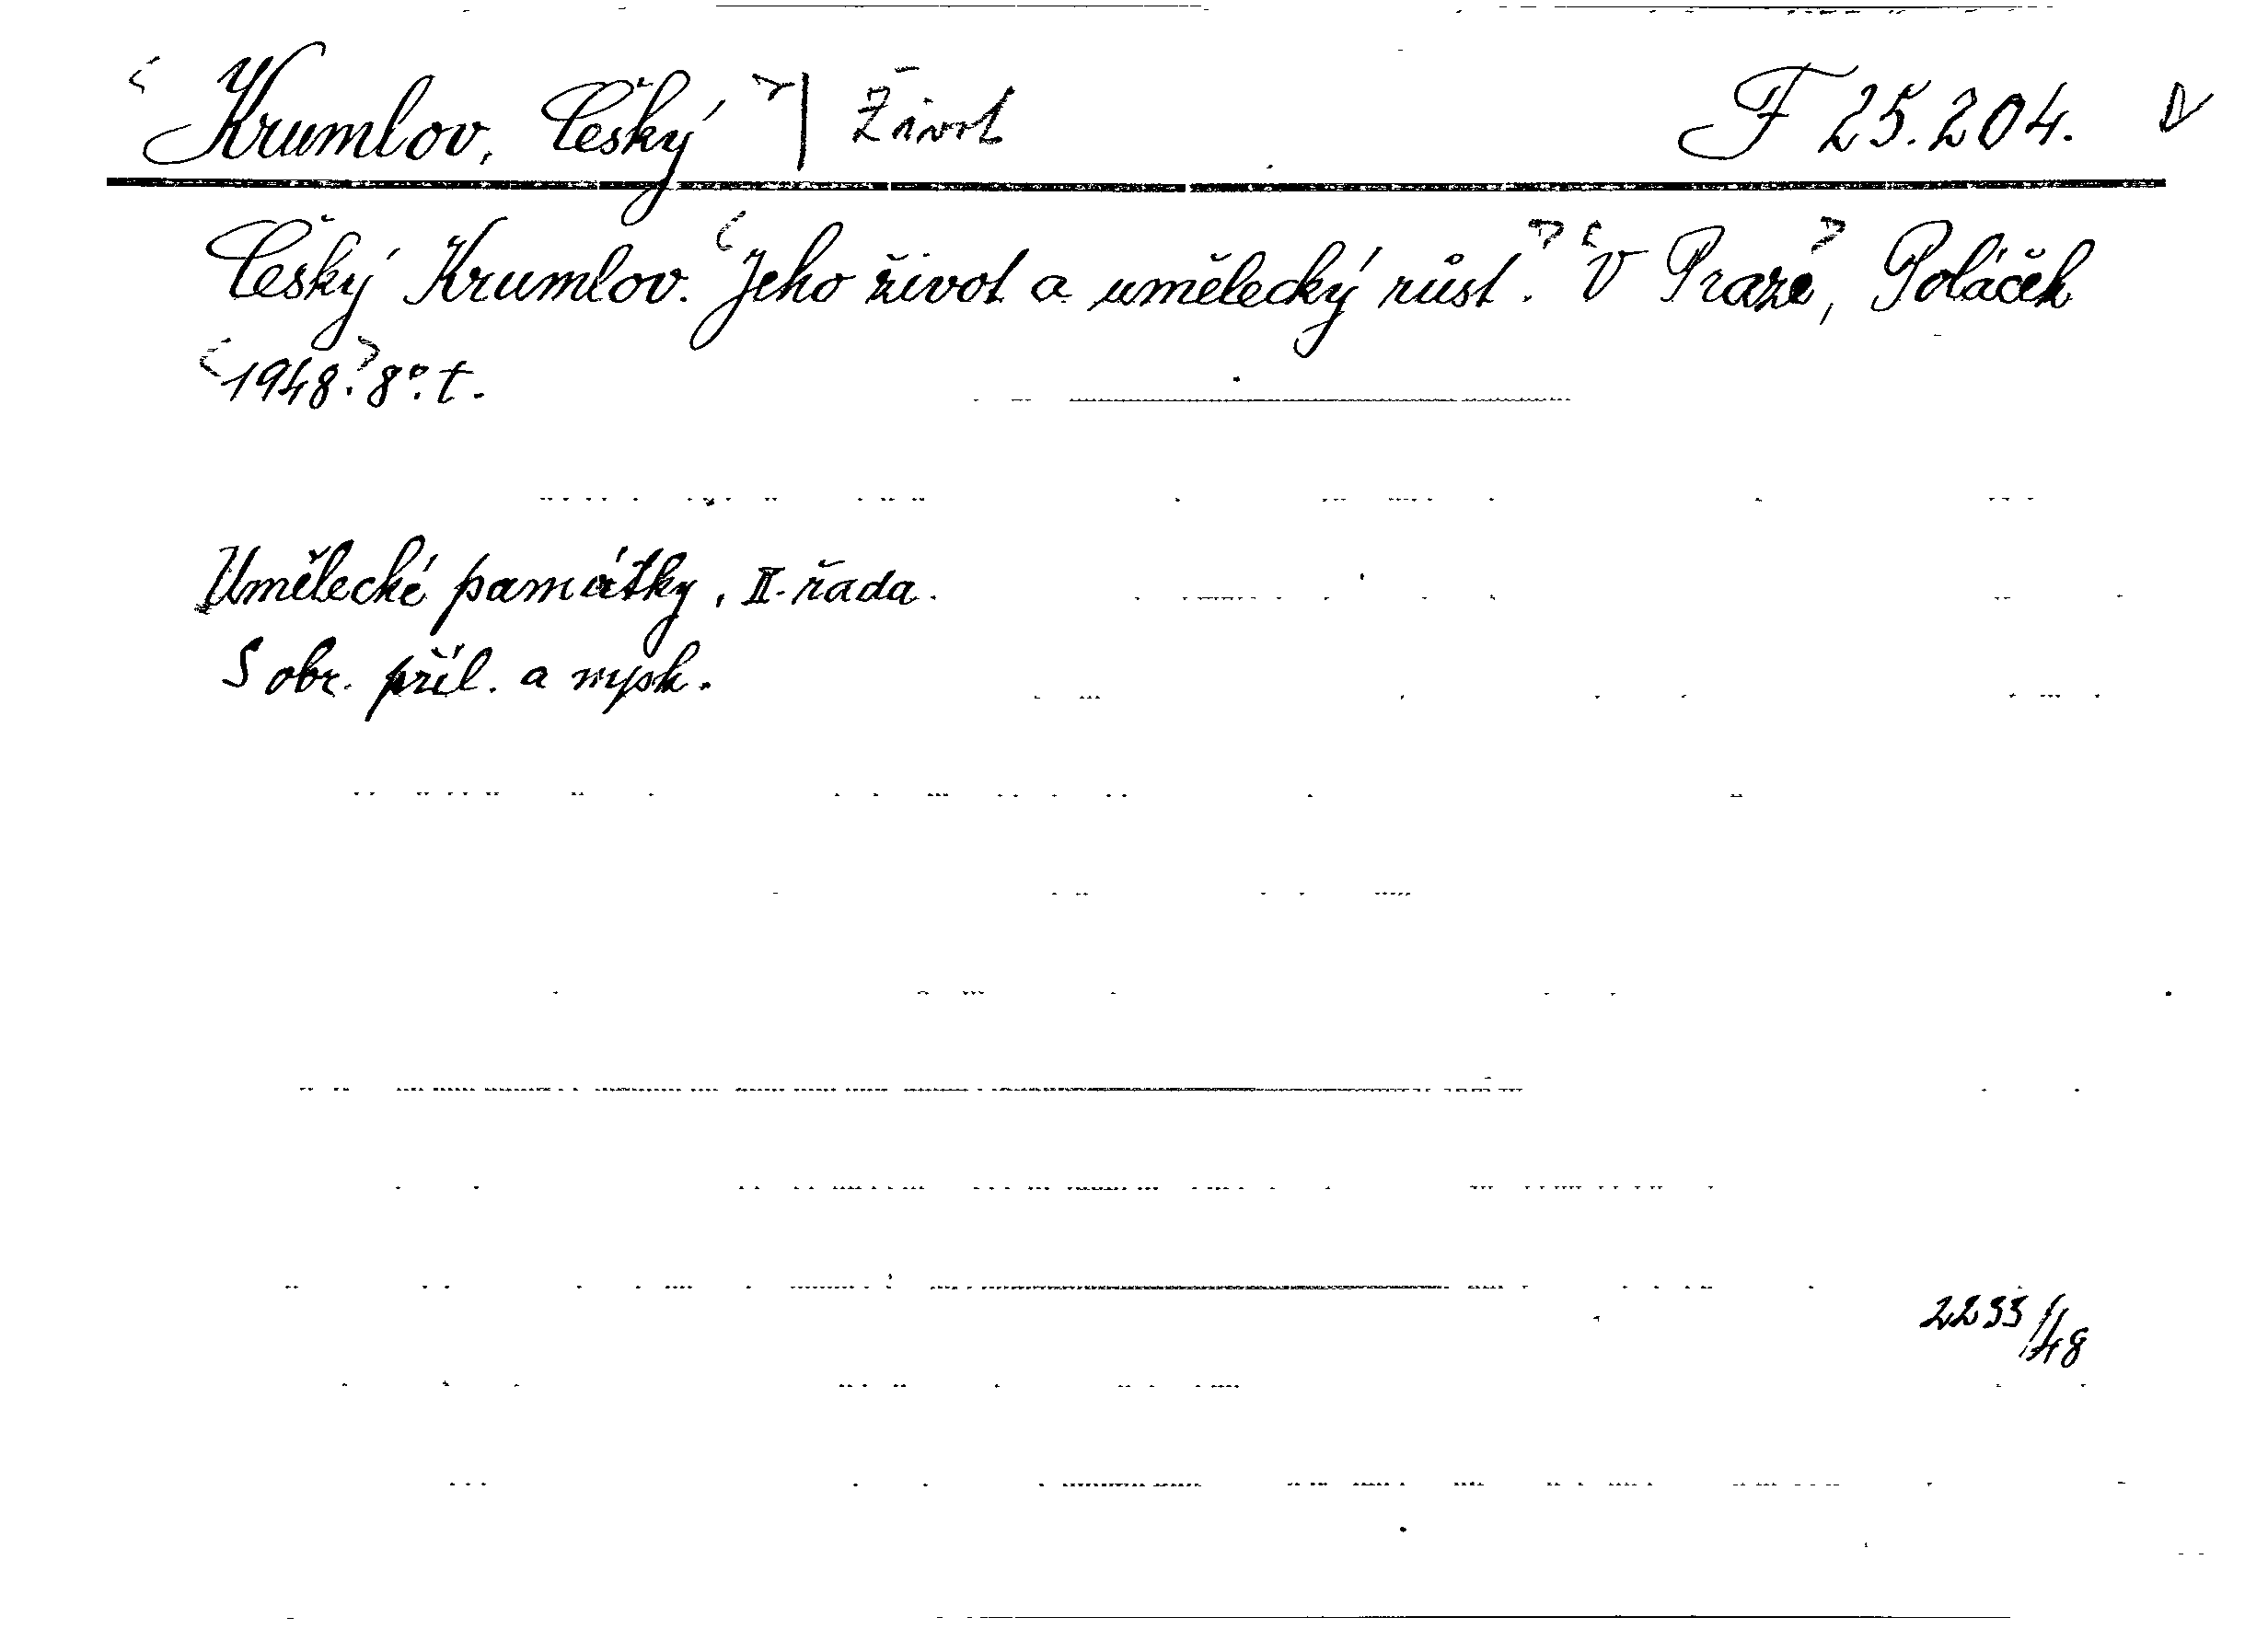 Krumlov, Český | Život F 25.204.
Český Krumlov. Jeho život a umělecký růst. V Praze, Poláček
1948. 8°. t.
Umělecké památky, II. řada.
S obr. příl. a vysk.
2233/48